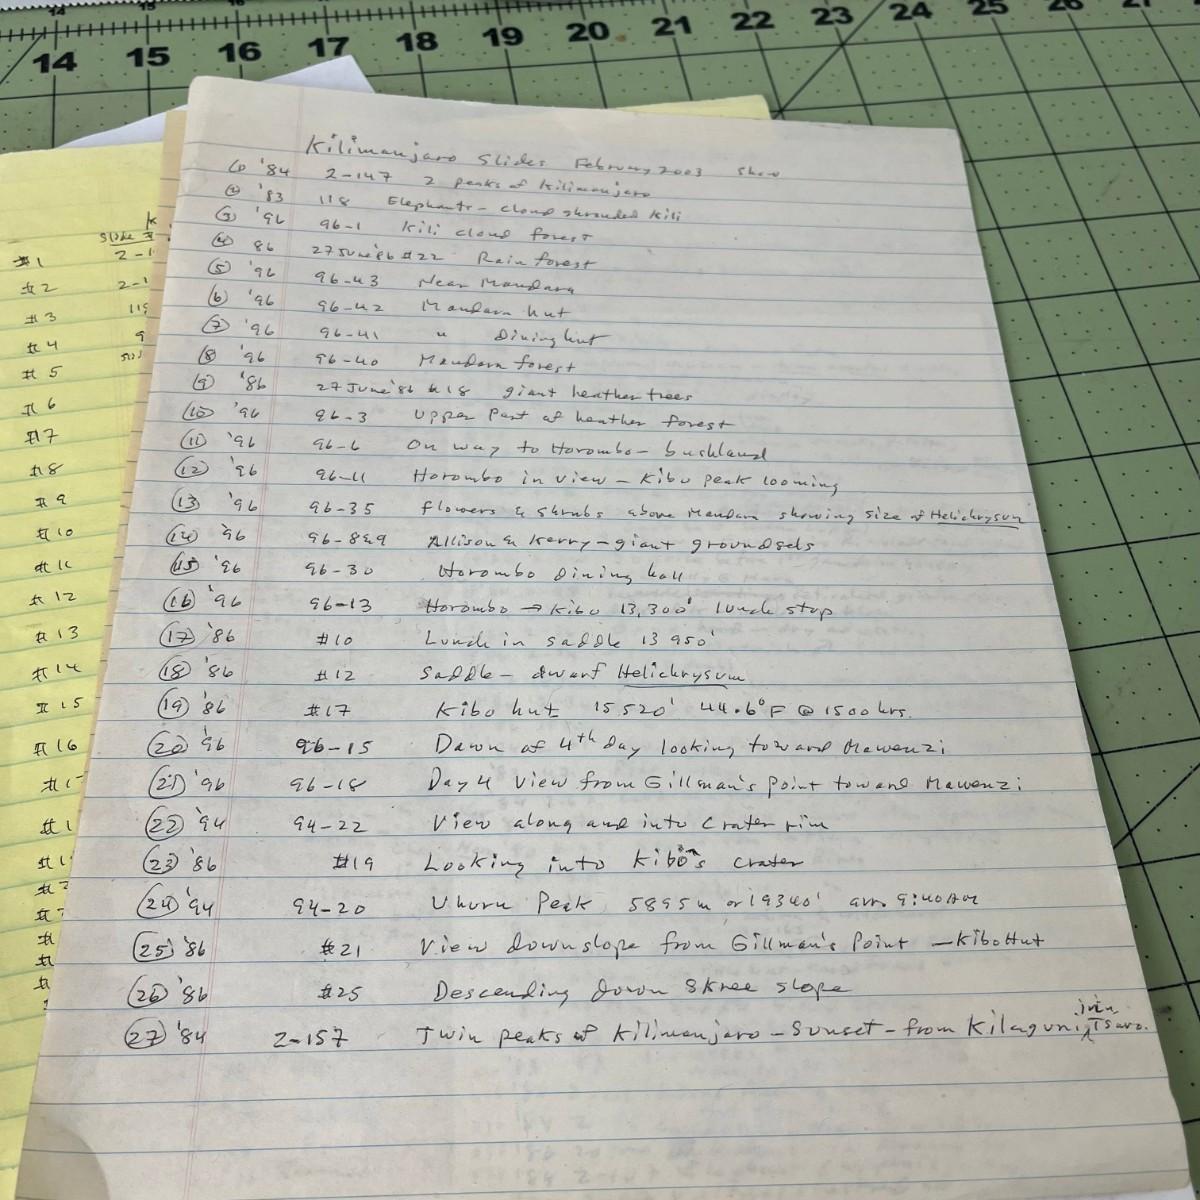 14 15 16 17 18 19 20 21 22 23 24 25 26 27
Kilimanjaro Slides February 2003 Show
(1) '84 2-147 2 peaks of Kilimanjaro
(2) '83 118 Elephants - cloud shrouded Kili
(3) '96 96-1 Kili cloud forest
(4) 86 27 June '86 #22 Rain forest
(5) '96 96-43 Near Mandara
(6) '96 96-42 Mandara hut
(7) '96 96-41 " Dining hut
(8) '96 96-40 Mandara forest
(9) '86 27 June '86 #18 giant heather trees
(10) '96 96-3 Upper Part of heather forest
(11) '96 96-6 On way to Horombo - bushland
(12) '96 96-11 Horombo in view - Kibo peak looming
(13) '96 96-35 flowers & shrubs above Mandara showing size of Helichrysum
(14) '96 96-8&9 Allison & Kerry - giant groundsels
(15) '96 96-30 Horombo Dining hall
(16) '96 96-13 Horombo → Kibo 13,300' lunch stop
(17) '86 #10 Lunch in saddle 13 950'
(18) '86 #12 Saddle - dwarf Helichrysum
(19) '86 #17 Kibo hut 15.520' 44.6°F @ 1500 hrs.
(20) '96 96-15 Dawn of 4th day looking toward Mawenzi
(21) '96 96-18 Day 4 View from Gillman's Point toward Mawenzi
(22) '94 94-22 View along and into crater rim
(23) '86 #19 Looking into Kibo's crater
(24) '94 94-20 Uhuru Peak 5895 m or 19340' arr. 9:40 AM
(25) '86 #21 View downslope from Gillman's Point - Kibo Hut
(26) '86 #25 Descending down skree slope
(27) '84 2-157 Twin peaks of Kilimanjaro - Sunset - from Kilaguni in Tsavo.
Slide #
#1 2-1
#2 2-1
#3 119
#4 9
#5
#6
#7
#8
#9
#10
#11
#12
#13
#14
#15
#16